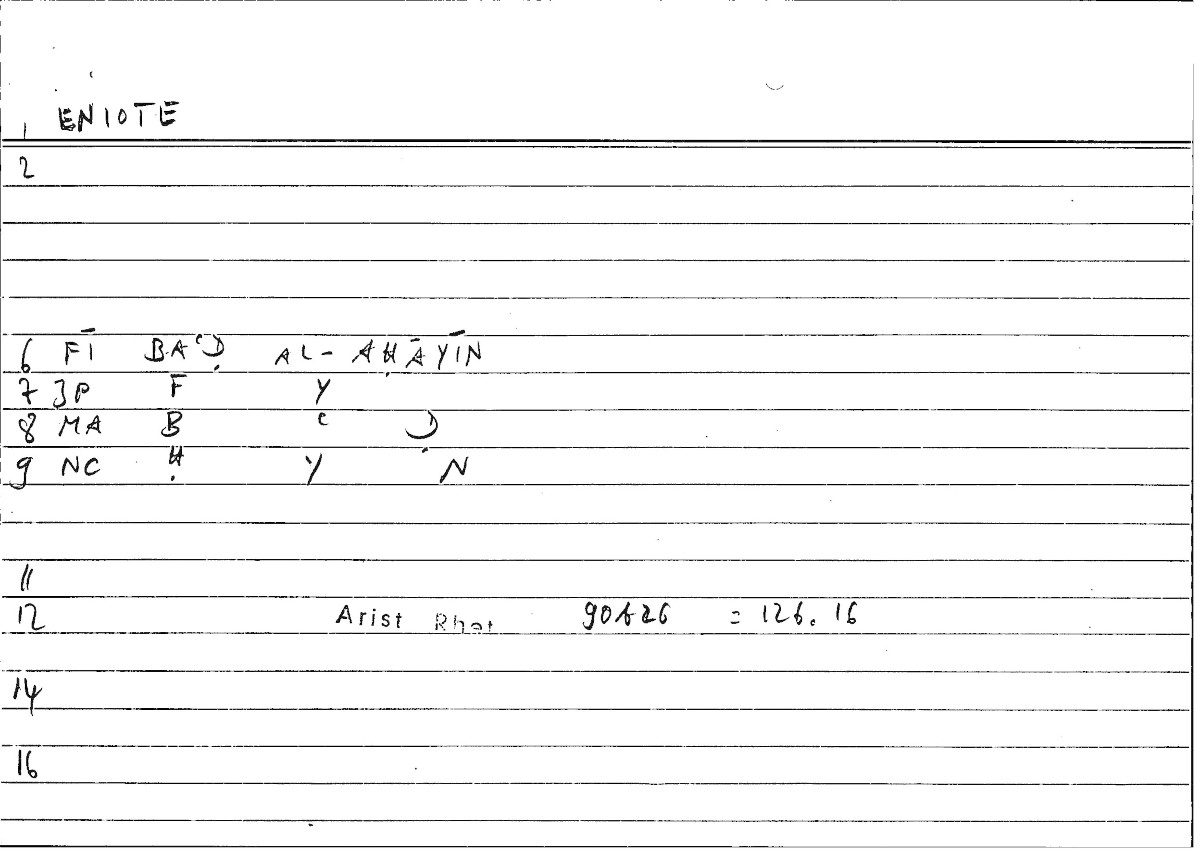 1 ENIOTE
2
6 FĪ BAʿḌ AL-AḤĀYĪN
7 JP F Y
8 MA B ʿ Ḍ
9 NC Ḥ Y N
11
12 Arist Rhet = 126.16
14
16